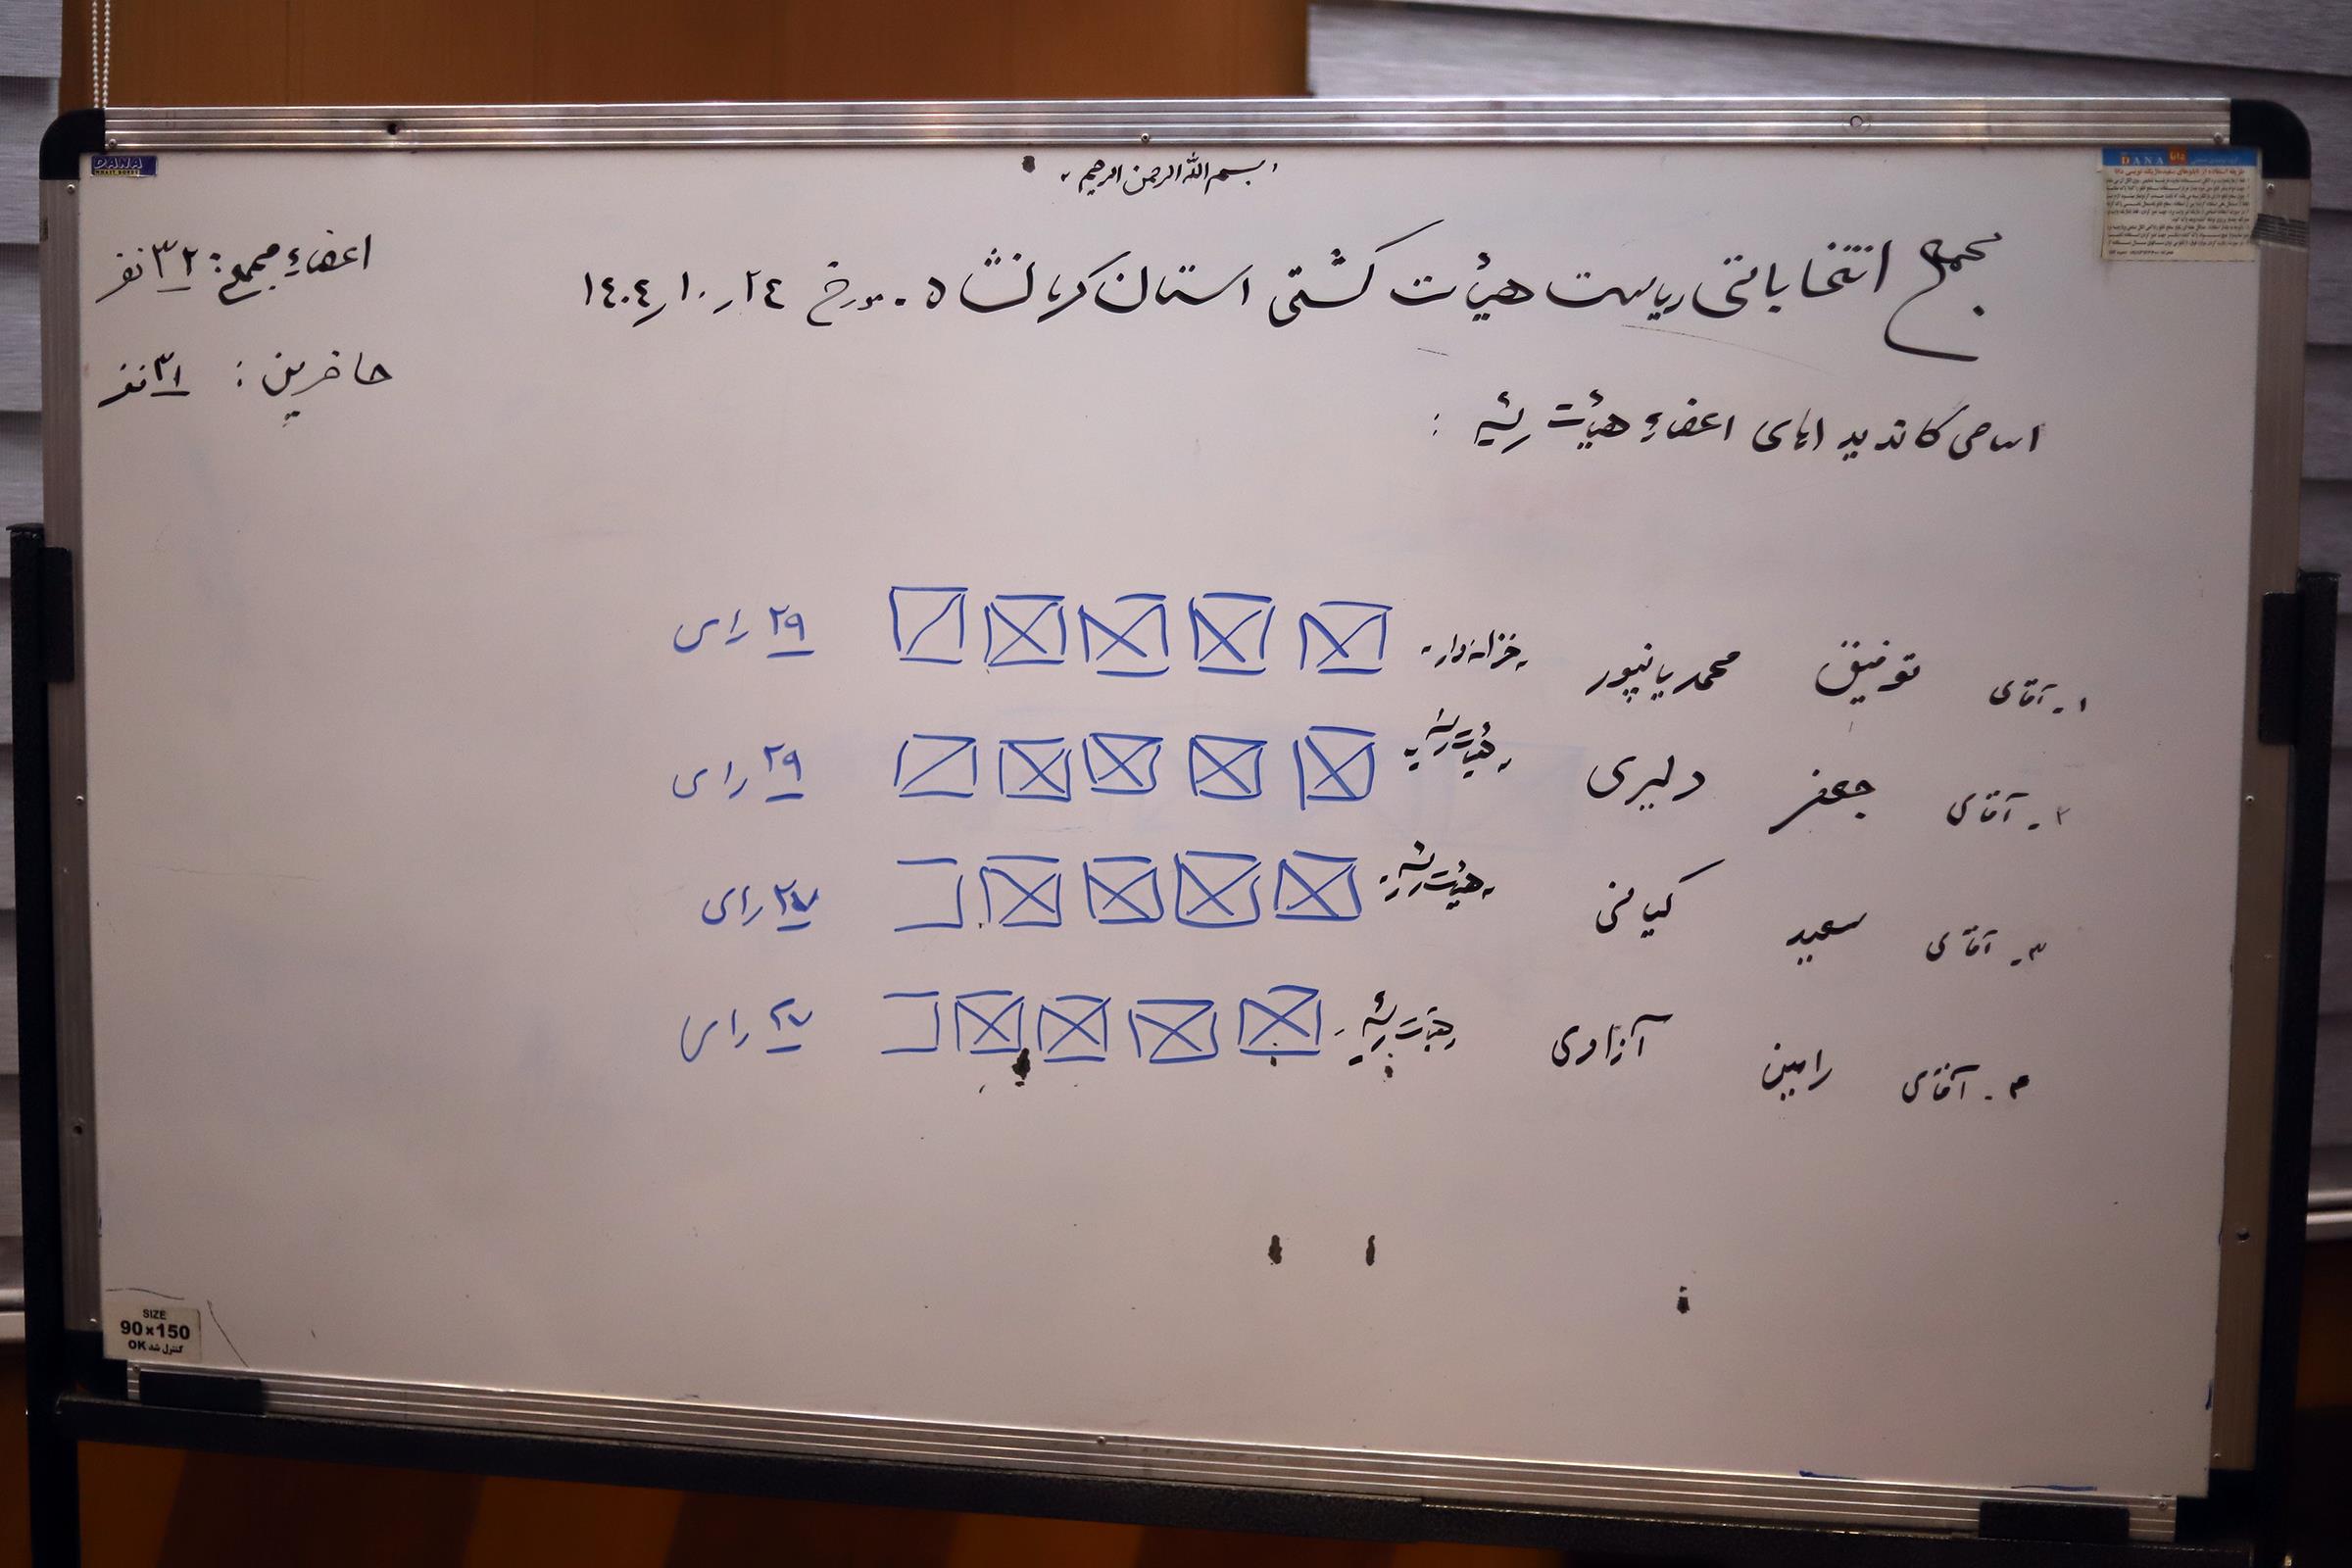 بسم الله الرحمن الرحیم
مجمع انتخاباتی ریاست هیأت کشتی استان کرمانشاه - مورخ ١٤٠٤/١٠/٢٤
اعضاءِ مجمع: ٣٢ نفر
حاضرین: ٣١ نفر
اسامی کاندیداهای اعضاءِ هیأت رئیسه:
١- آقای توفیق محمدیانپور - خزانه‌دار - ٢٩ رای
٢- آقای جعفر دلیری - هیأت رئیسه - ٢٩ رای
٣- آقای سعید کیانی - هیأت رئیسه - ٢٧ رای
٤- آقای رامین آزادی - هیأت رئیسه - ٢٧ رای
DANA
DANA دانا
SIZE
90×150
کنترل شد OK